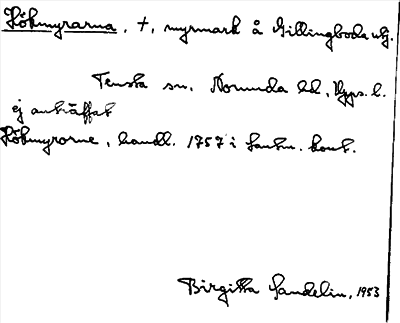 Hökmyrarna, †, myrmark å Gillingboda utj.
Tensta sn, Norunda hd, Upps. l.
ej anträffat
Hökmyrorne, handl. 1757 i lantm. kont.
Birgitta Sandelin, 1953